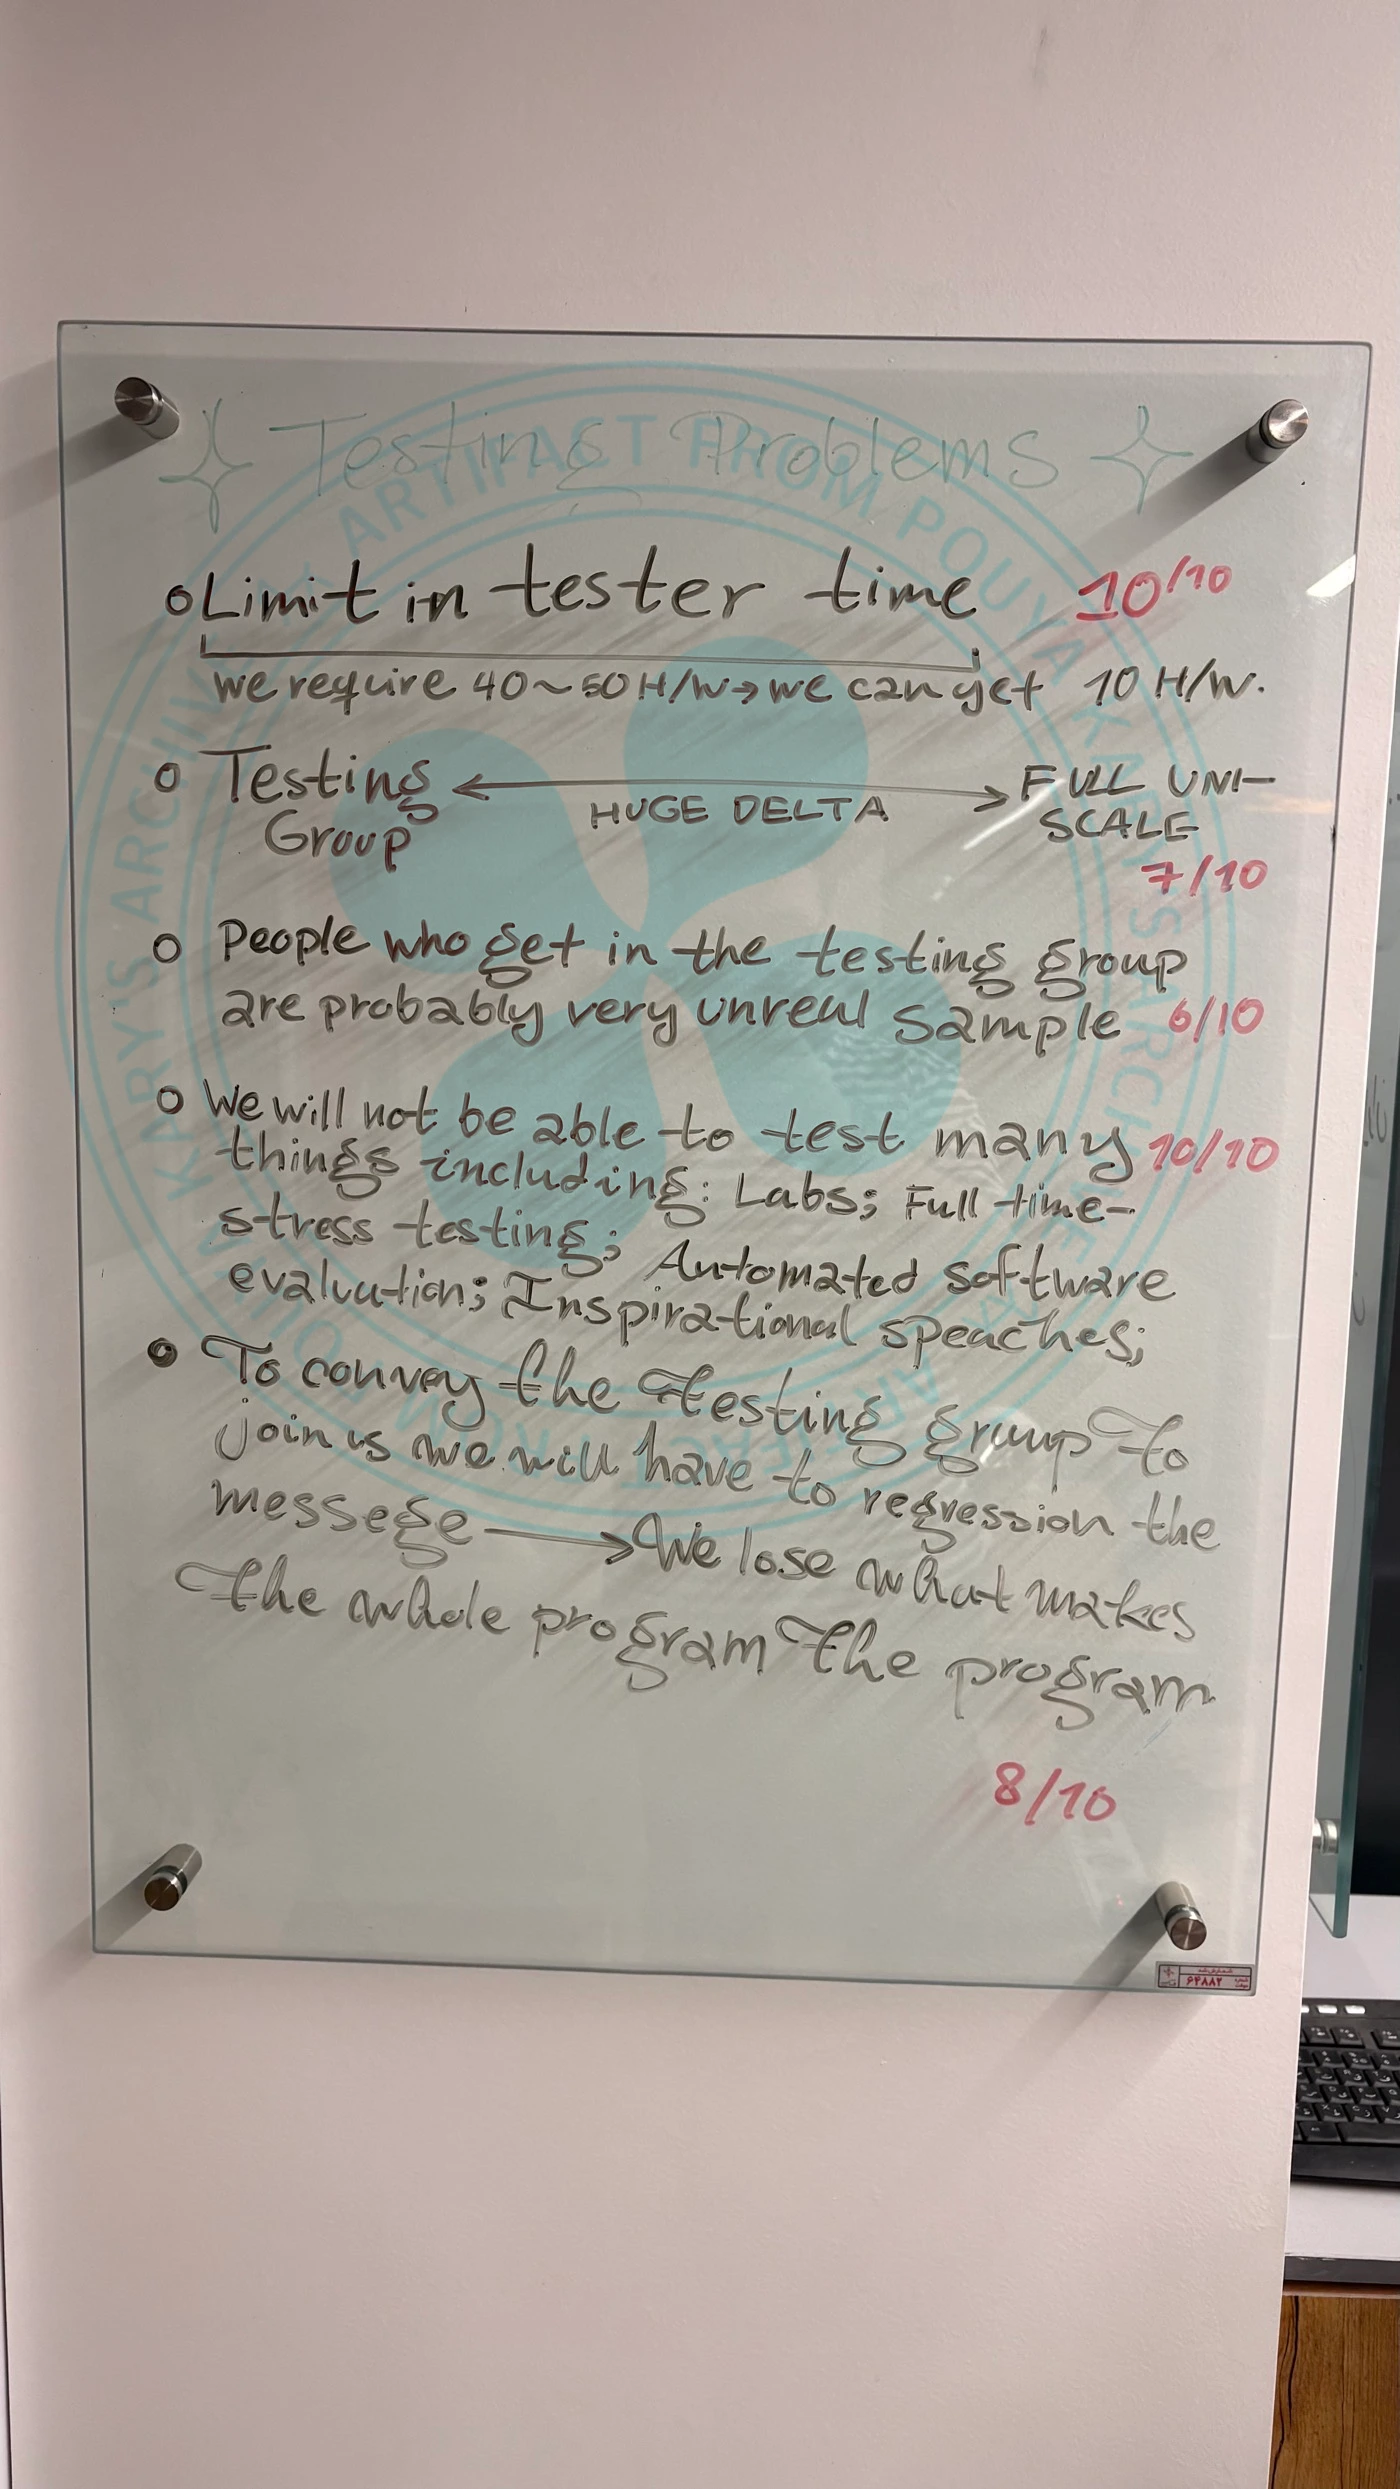 Testing Problems
Limit in tester time 10/10
we require 40~50 H/W → we can get 10 H/W.
Testing ↔ FULL UNI-
HUGE DELTA
Group SCALE
7/10
People who get in the testing group
are probably very unreal sample 6/10
We will not be able to test many 10/10
things including: Labs; Full time-
stress testing; Automated software
evaluation; Inspirational speaches;
To convey the testing group to
join us we will have to regression the
messege → We lose what makes
the whole program the program
8/10
ARTIFACT FROM POUYA
KARY'S ARCHIVE
۶۴۸۸۲